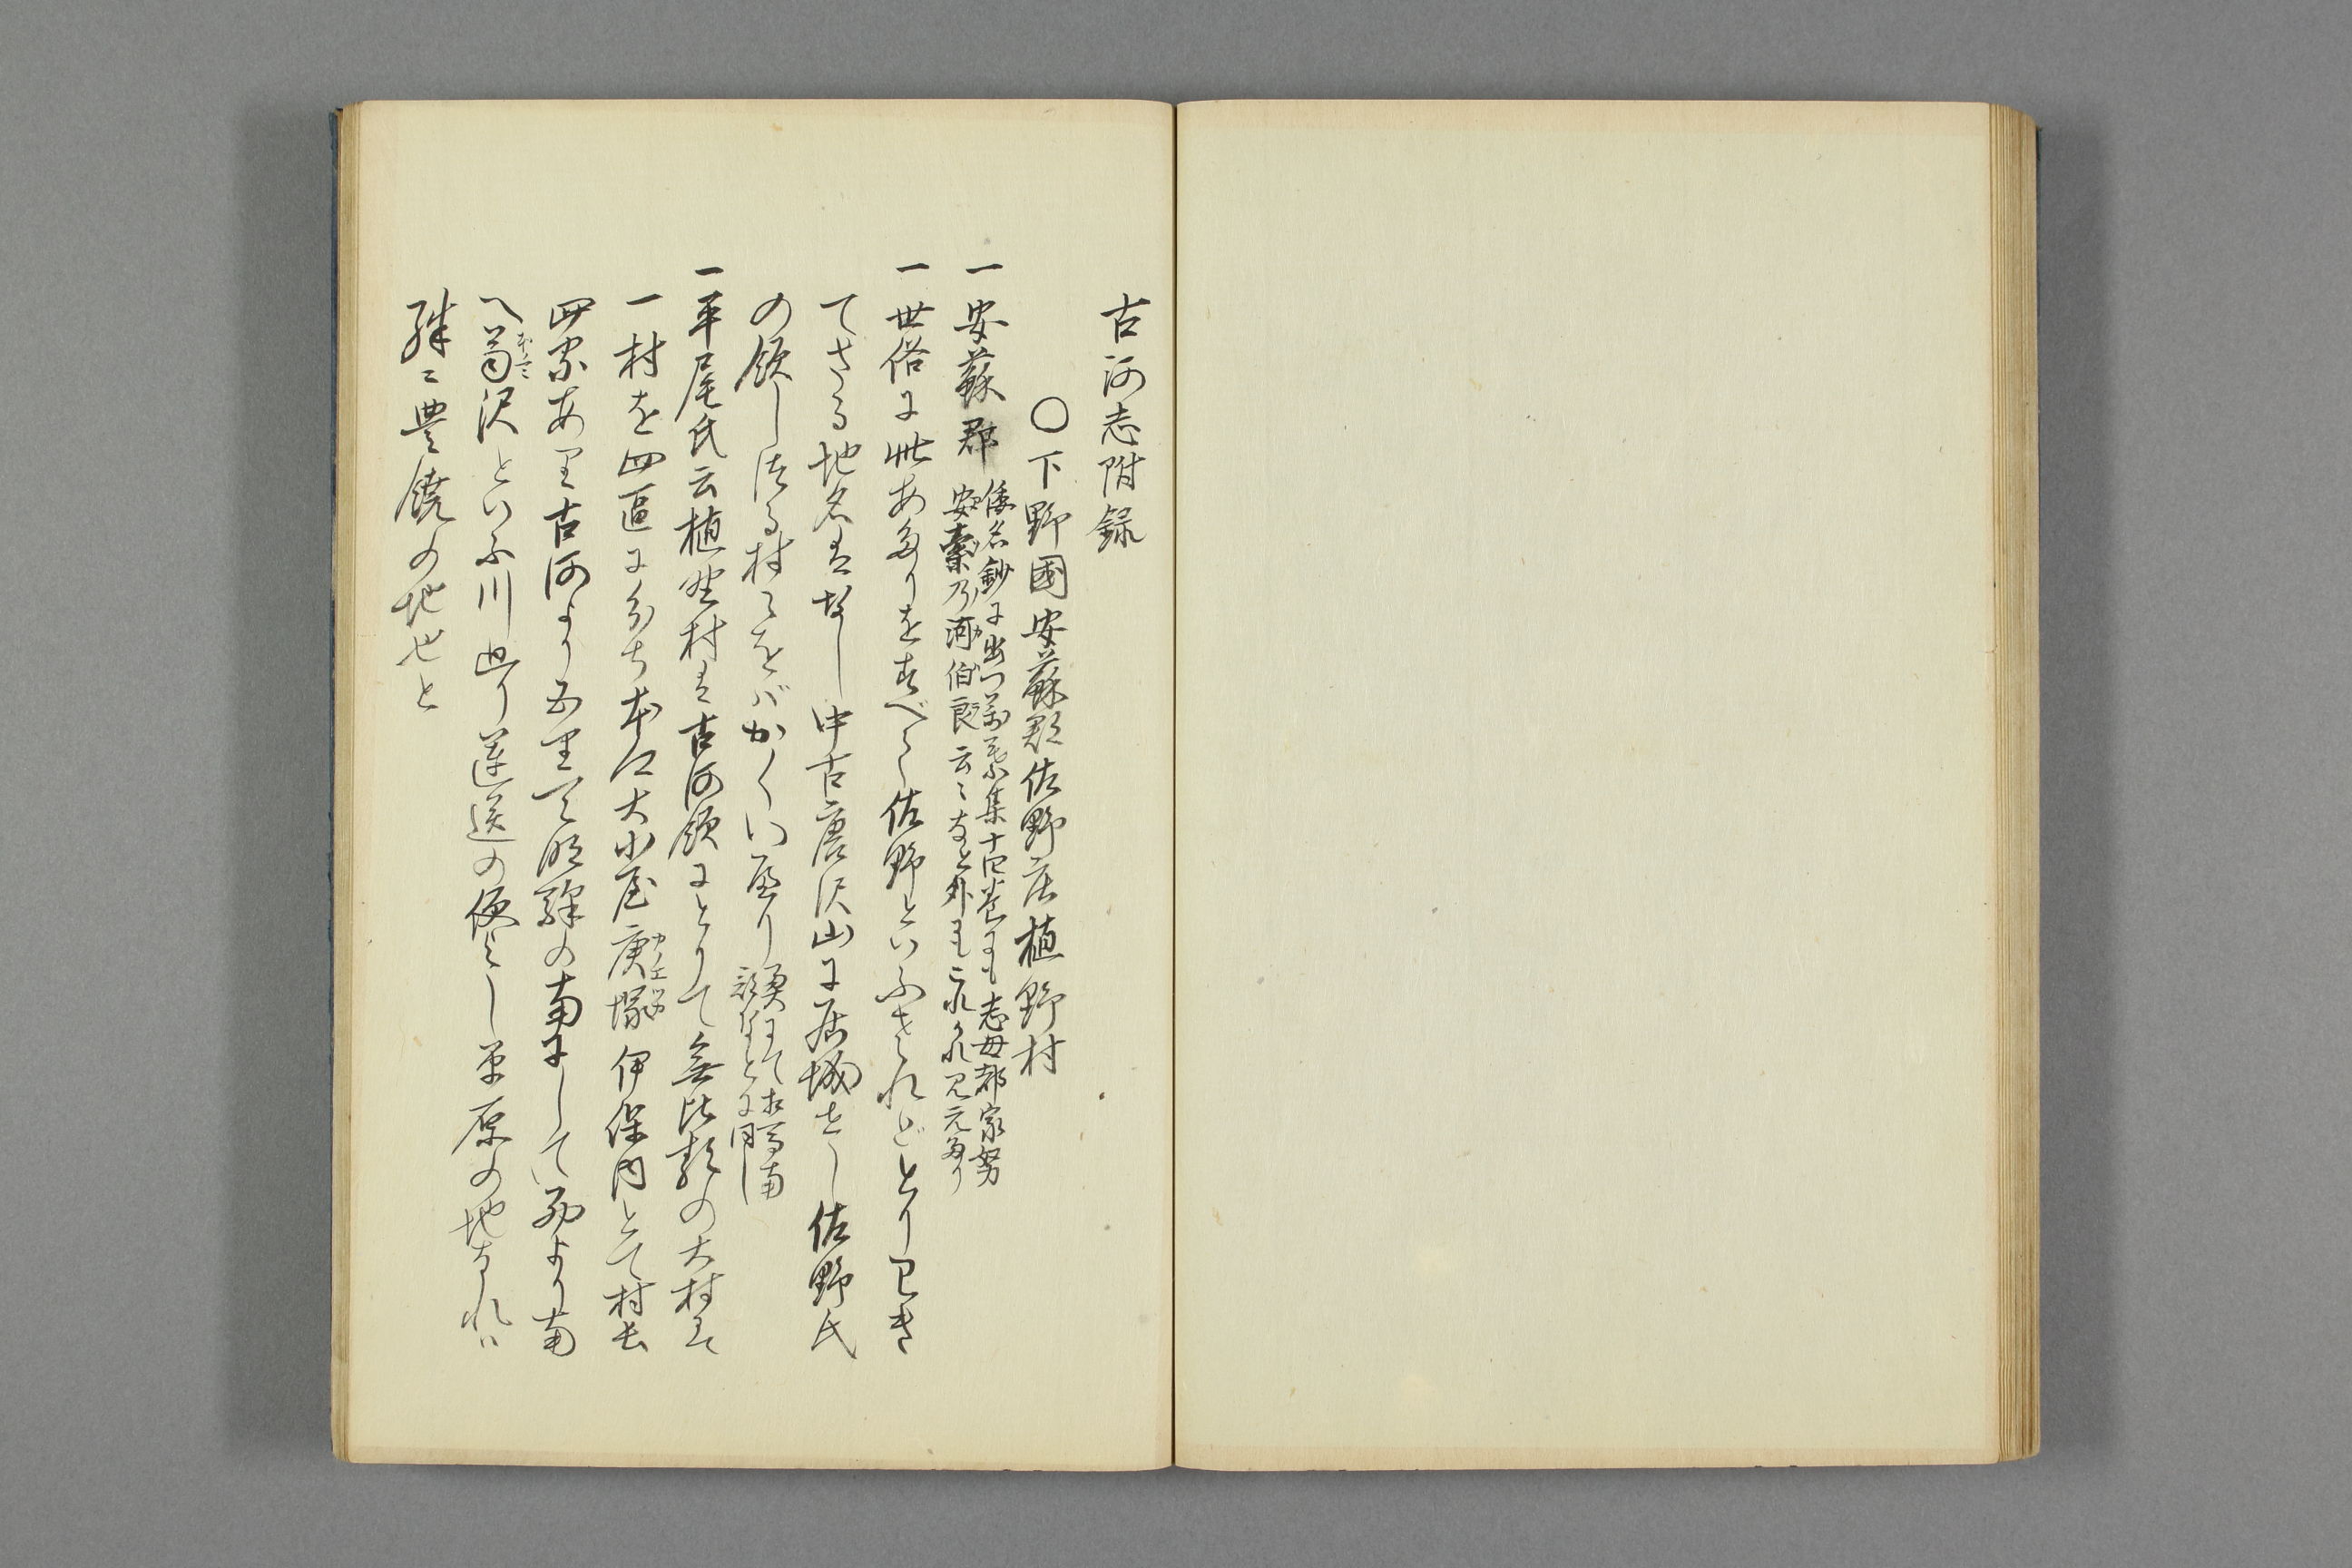 古河志附録
〇下野國安蘇郡佐野庄植野村
一安蘇郡
倭名鈔に出つ萬葉集十四巻にも志母都家努
安素乃河伯良云々なと外にも
一世俗に此あたりをすべて佐野といふされどとりわき
てさる地名はなし中古唐沢山に居城せし佐野氏
の領しける村々をばかくいへり
一平尾氏云植野村は古河領にとりて無比類の大村にて
一村を四區に分ち本江大小屋庚塚伊保内とて村長
カノエツカ
四家あり古河より五里にて の南にして より南
へ菊沢といふ川 り運送の便もよし平原の地なれは
殊ニ豊饒の地也と